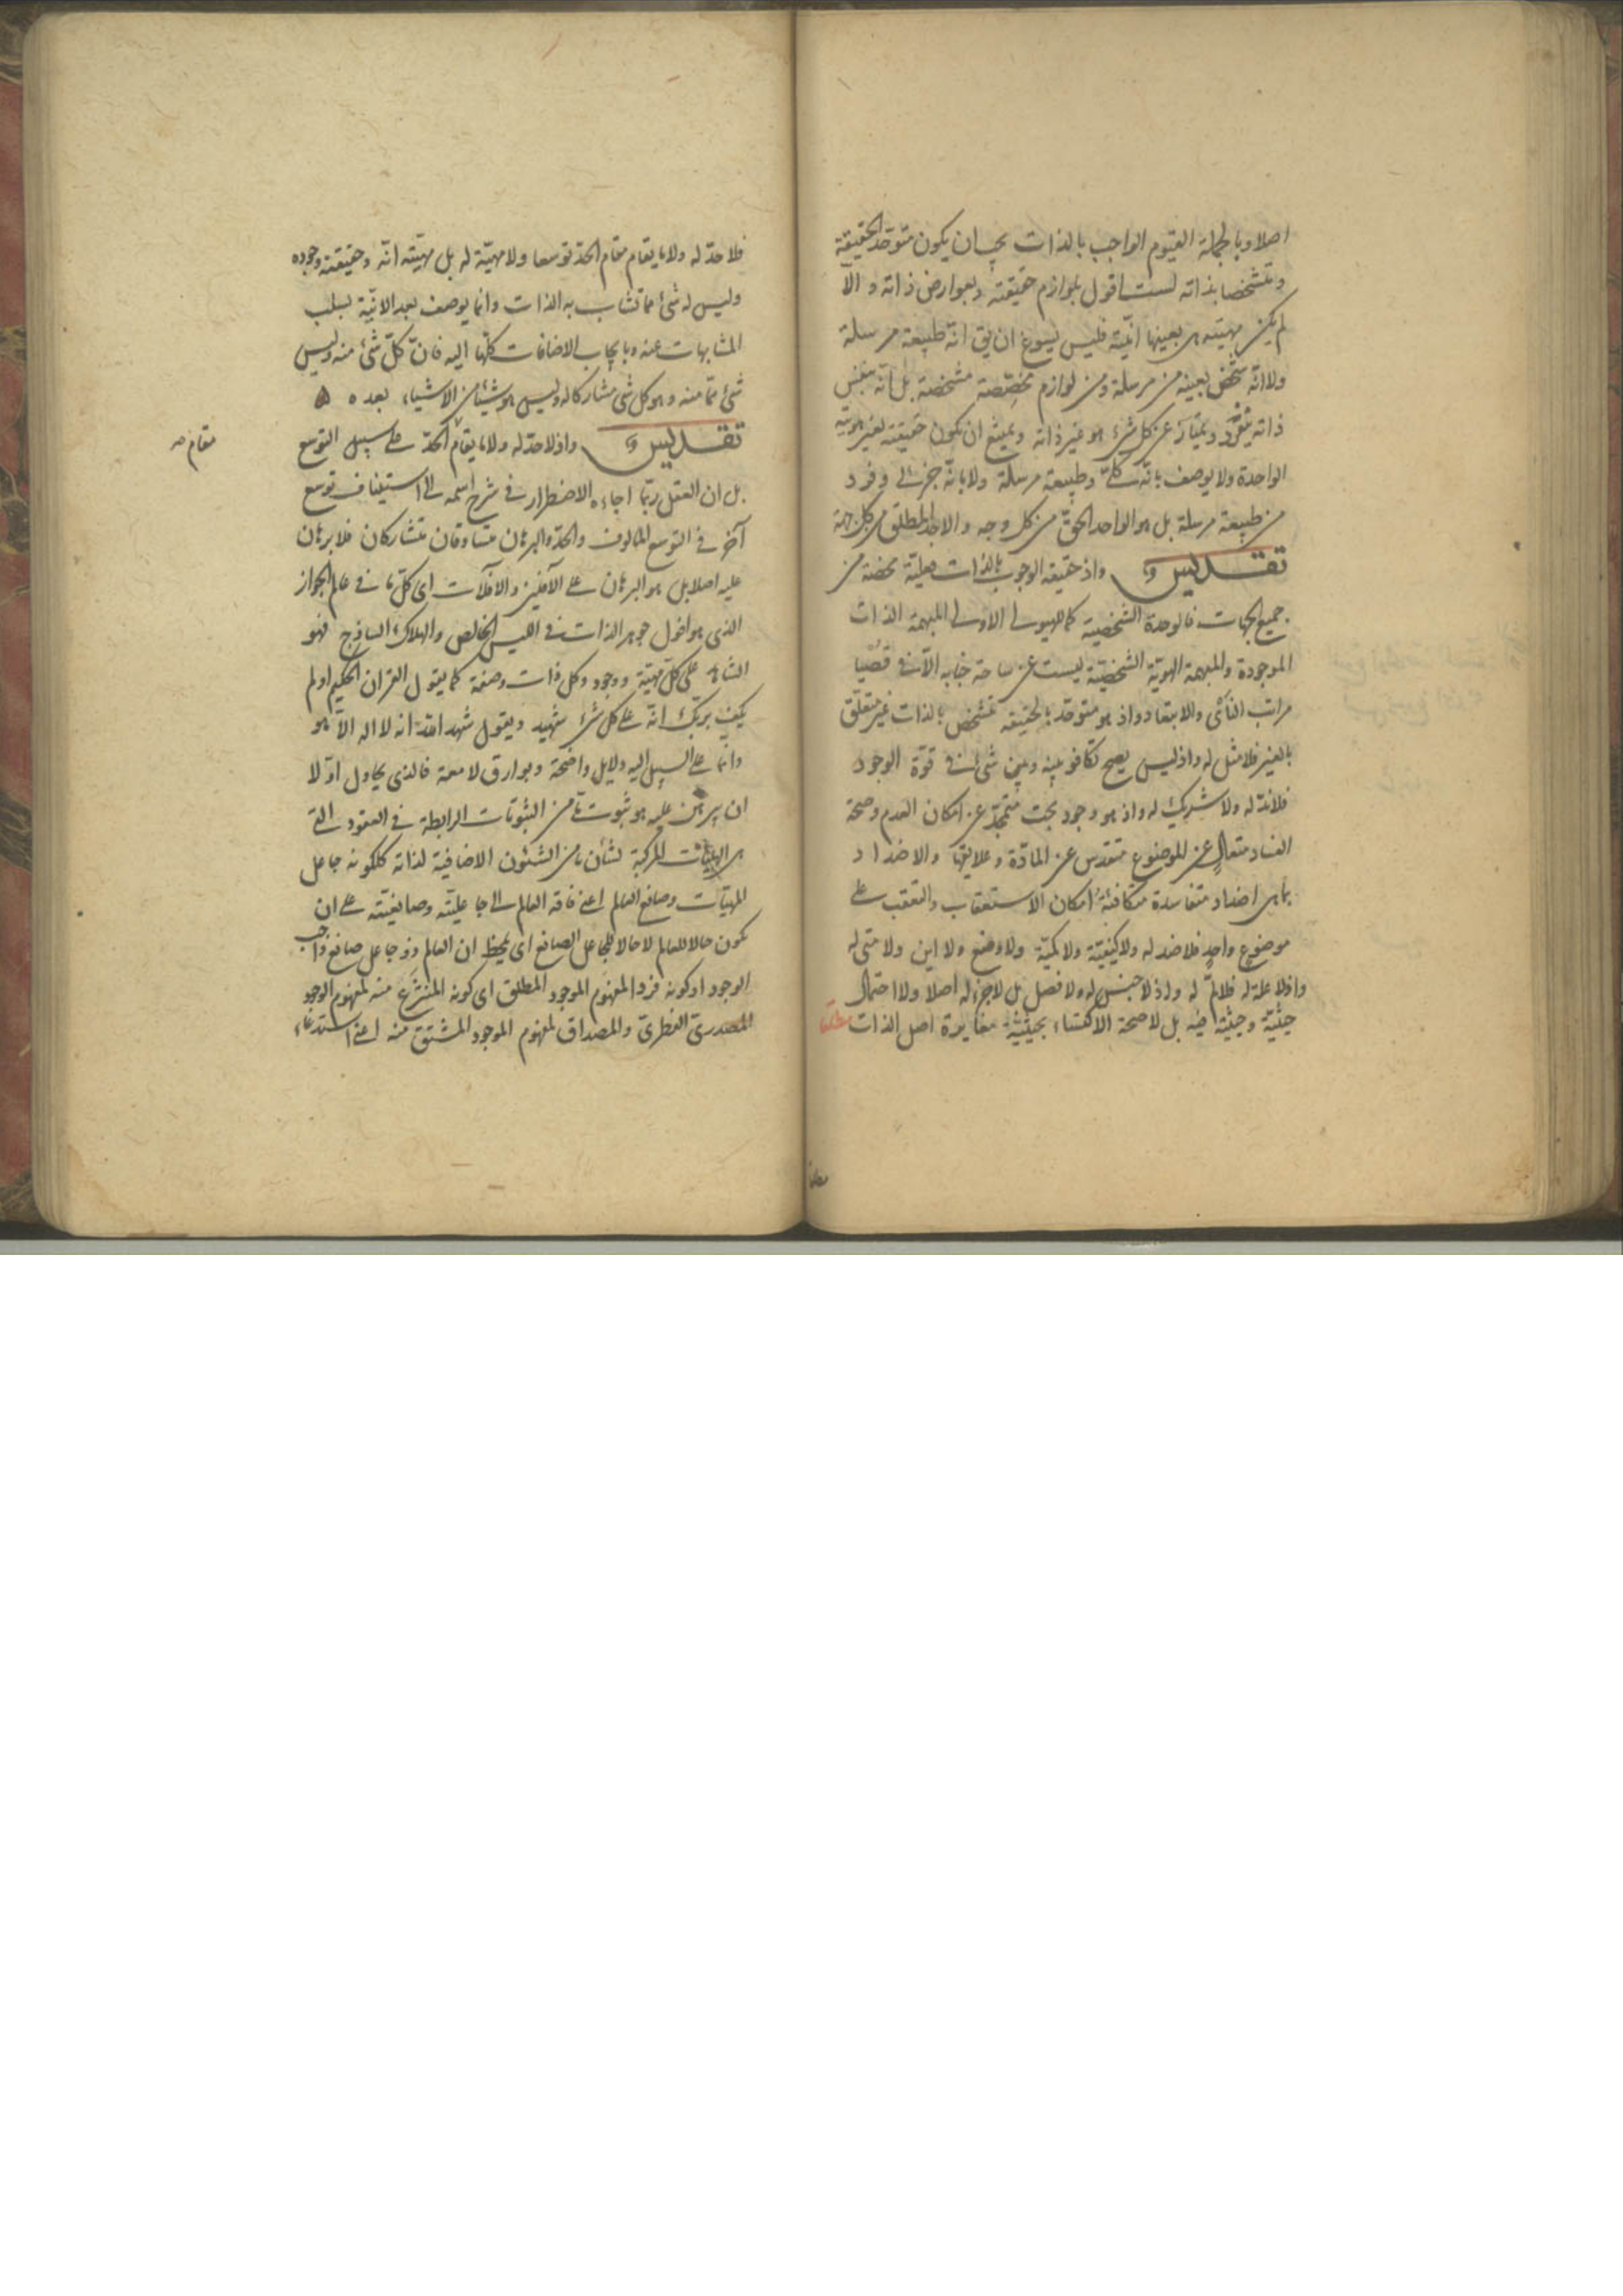 اصلا وبالجملة القيوم الواجب بالذات يجب ان يكون متوحّد الحقيقة
ومتشخصا بذاته لست اقول بلوازم حقيقته وبعوارض ذاته و الّا
لم يكن مهيته هى بعينها انيّته فليس يسوغ ان يق انّه طبيعة مرسلة
ولا انّه شخص بعينه من مرسلة ومن لوازم مخصّصة مشخصة بل انّه بنفس
ذاته يتفرّد ويمتاز عن كل شىء هو غير ذاته ويمتنع ان تكون حقيقته لغير هويته
الواحدة ولا يوصف بانّه كلّى وطبيعة مرسلة ولا بانّه جزئى وفرد
من طبيعة مرسلة بل هو الواحد الحقّ من كل وجه والاحد المطلق من كل جهة
تقديس واذ حقيقه الوجوب بالذات فعليّة محضة من
جميع الجهات فالوحدة الشخصية كما للهيولى الاولى المبهمة الذات
الموجودة والمبهمة الهويّة الشخصيّة ليست عن ساحة جنابه الّا فى قصيا
مراتب التأئى والابتعاد واذ هو متوحّد بالحقيقه متشخص بالذات غير متعلّق
بالغير فلا مثل له واذ ليس يصح تكافو بينه وبين شىء فى قوّة الوجود
فلا ندّ له ولا شريك له واذ هو وجود بحت متمجّد عن امكان العدم وصحة
الفساد متعالٍ عن الموضوع متقدس عن المادّة وعلايقها والاضداد
بما هى اضداد متفاسدة متكافئة امكان الاستعقاب والتعقب على
موضوع واحدٍ فلا ضد له ولا كيفيّة ولا كميّة ولا وضع ولا اين ولا متى له
واذ لا علة له فلا لمّ له واذ لا جنس له ولا فصل بل لا جزء له اصلا ولا احتمال
حيثيّة وحيثيّة فيه بل لا صحة الاكتساء بحيثيّة مغايرة اصل الذات مطلقا
فلا حدّ له ولا ما يقام مقام الحدّ توسعا ولا مهيّة له بل مهيّته انّه وحقيقته وجوده
وليس له شىء مما تشاب به الذات وانما يوصف بعد الانيّة بسلب
المشابهات عنه وبايجاب الاضافات كلّها اليه فانّ كلّ شىء منه وليس
شىء ممّا منه وهو كل شى مشاركا له وليس هو شيئا من الاشياء بعده
تقديس واذ لا حدّ له ولا ما يقام الحدّ على سبيل التوسع
مقام صه
بل ان العقل ربّما اجاءه الاضطرار فى شرح اسمه الى استيناف توسع
آخر فى التوسع المالوف والحدّ والبرهان متساوقان متشاركان فلا برهان
عليه اصلا بل هو البرهان على الآفلين والافلات اى كلّ ما فى عالم الجواز
الذى هو افول جوهر الذات فى الليس الخالص والهلاك الساذج فهو
الشاهد على كلّ مهيّة ووجود وكل ذات وصفة كما يقول القران الحكيم اولم
يكف بربّك انّه على كل شىء شهيد ويقول شهد الله انه لا اله الّا هو
وانما على السبيل اليه دلايل واضحة وبوارق لامعة فالذى يحاول اوّلا
ان يبرهن عليه هو ثبوت ما من الثبوتات الرابطة فى العقود التى
هى الهليّات المركبة لشأن ما من الشئون الاضافية لذاته ككونه جاعل
المهيّات وصانع العالم اعنى فاقة العالم الى جاعليّته وصانعيّته على ان
تكون حالا للعالم لا حالا للجاعل الصانع اى يلحظ ان العالم ذو جاعل صانع واجب
الوجود او كونه فردا لمفهوم الموجود المطلق اى كونه المنتزع منه لمفهوم الوجود
المصدرى الفطرى والمصداق لمفهوم الموجود المشتق منه اعنى استدعاء